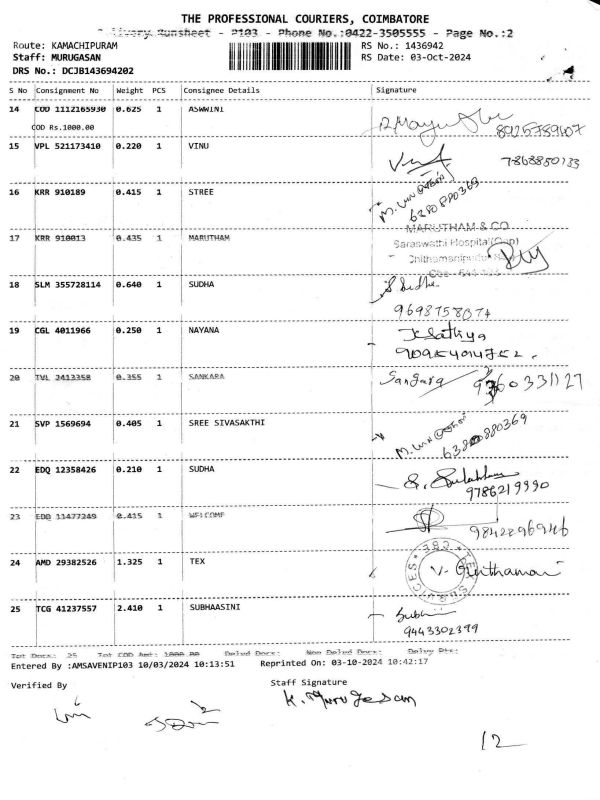 THE PROFESSIONAL COURIERS, COIMBATORE
Delivery Runsheet - P103 - Phone No.:0422-3505555 - Page No.:2
Route: KAMACHIPURAM RS No.: 1436942
Staff: MURUGASAN RS Date: 03-Oct-2024
DRS No.: DCJB143694202
S No Consignment No Weight PCS Consignee Details Signature
14 COD 1112165930 0.625 1 ASWWINI
COD Rs.1000.00 8925789607
15 VPL 521173410 0.220 1 VINU
7868850133
16 KRR 910189 0.415 1 STREE
6280880369
17 KRR 910013 0.435 1 MARUTHAM MARUTHAM & CO
Saraswathi Hospital (Opp)
18 SLM 355728114 0.640 1 SUDHA S. Sudha
9698758074
19 CGL 4011966 0.250 1 NAYANA K Sathiya
9095404752.
20 TVL 2413358 0.355 1 SANKARA Sangara 9360331127
21 SVP 1569694 0.405 1 SREE SIVASAKTHI
6380880369
22 EDQ 12358426 0.210 1 SUDHA
9786219990
23 EDB 11477249 0.415 1 WELCOME
9842296946
24 AMD 29382526 1.325 1 TEX V-
25 TCG 41237557 2.410 1 SUBHAASINI Subha
9443302399
Tot Docs: 25 Tot COD Amt: 1000.00 Delvd Docs: Non Delvd Docs: Delvy Pts:
Entered By :AMSAVENIP103 10/03/2024 10:13:51 Reprinted On: 03-10-2024 10:42:17
Verified By Staff Signature
K. Murugesan
12